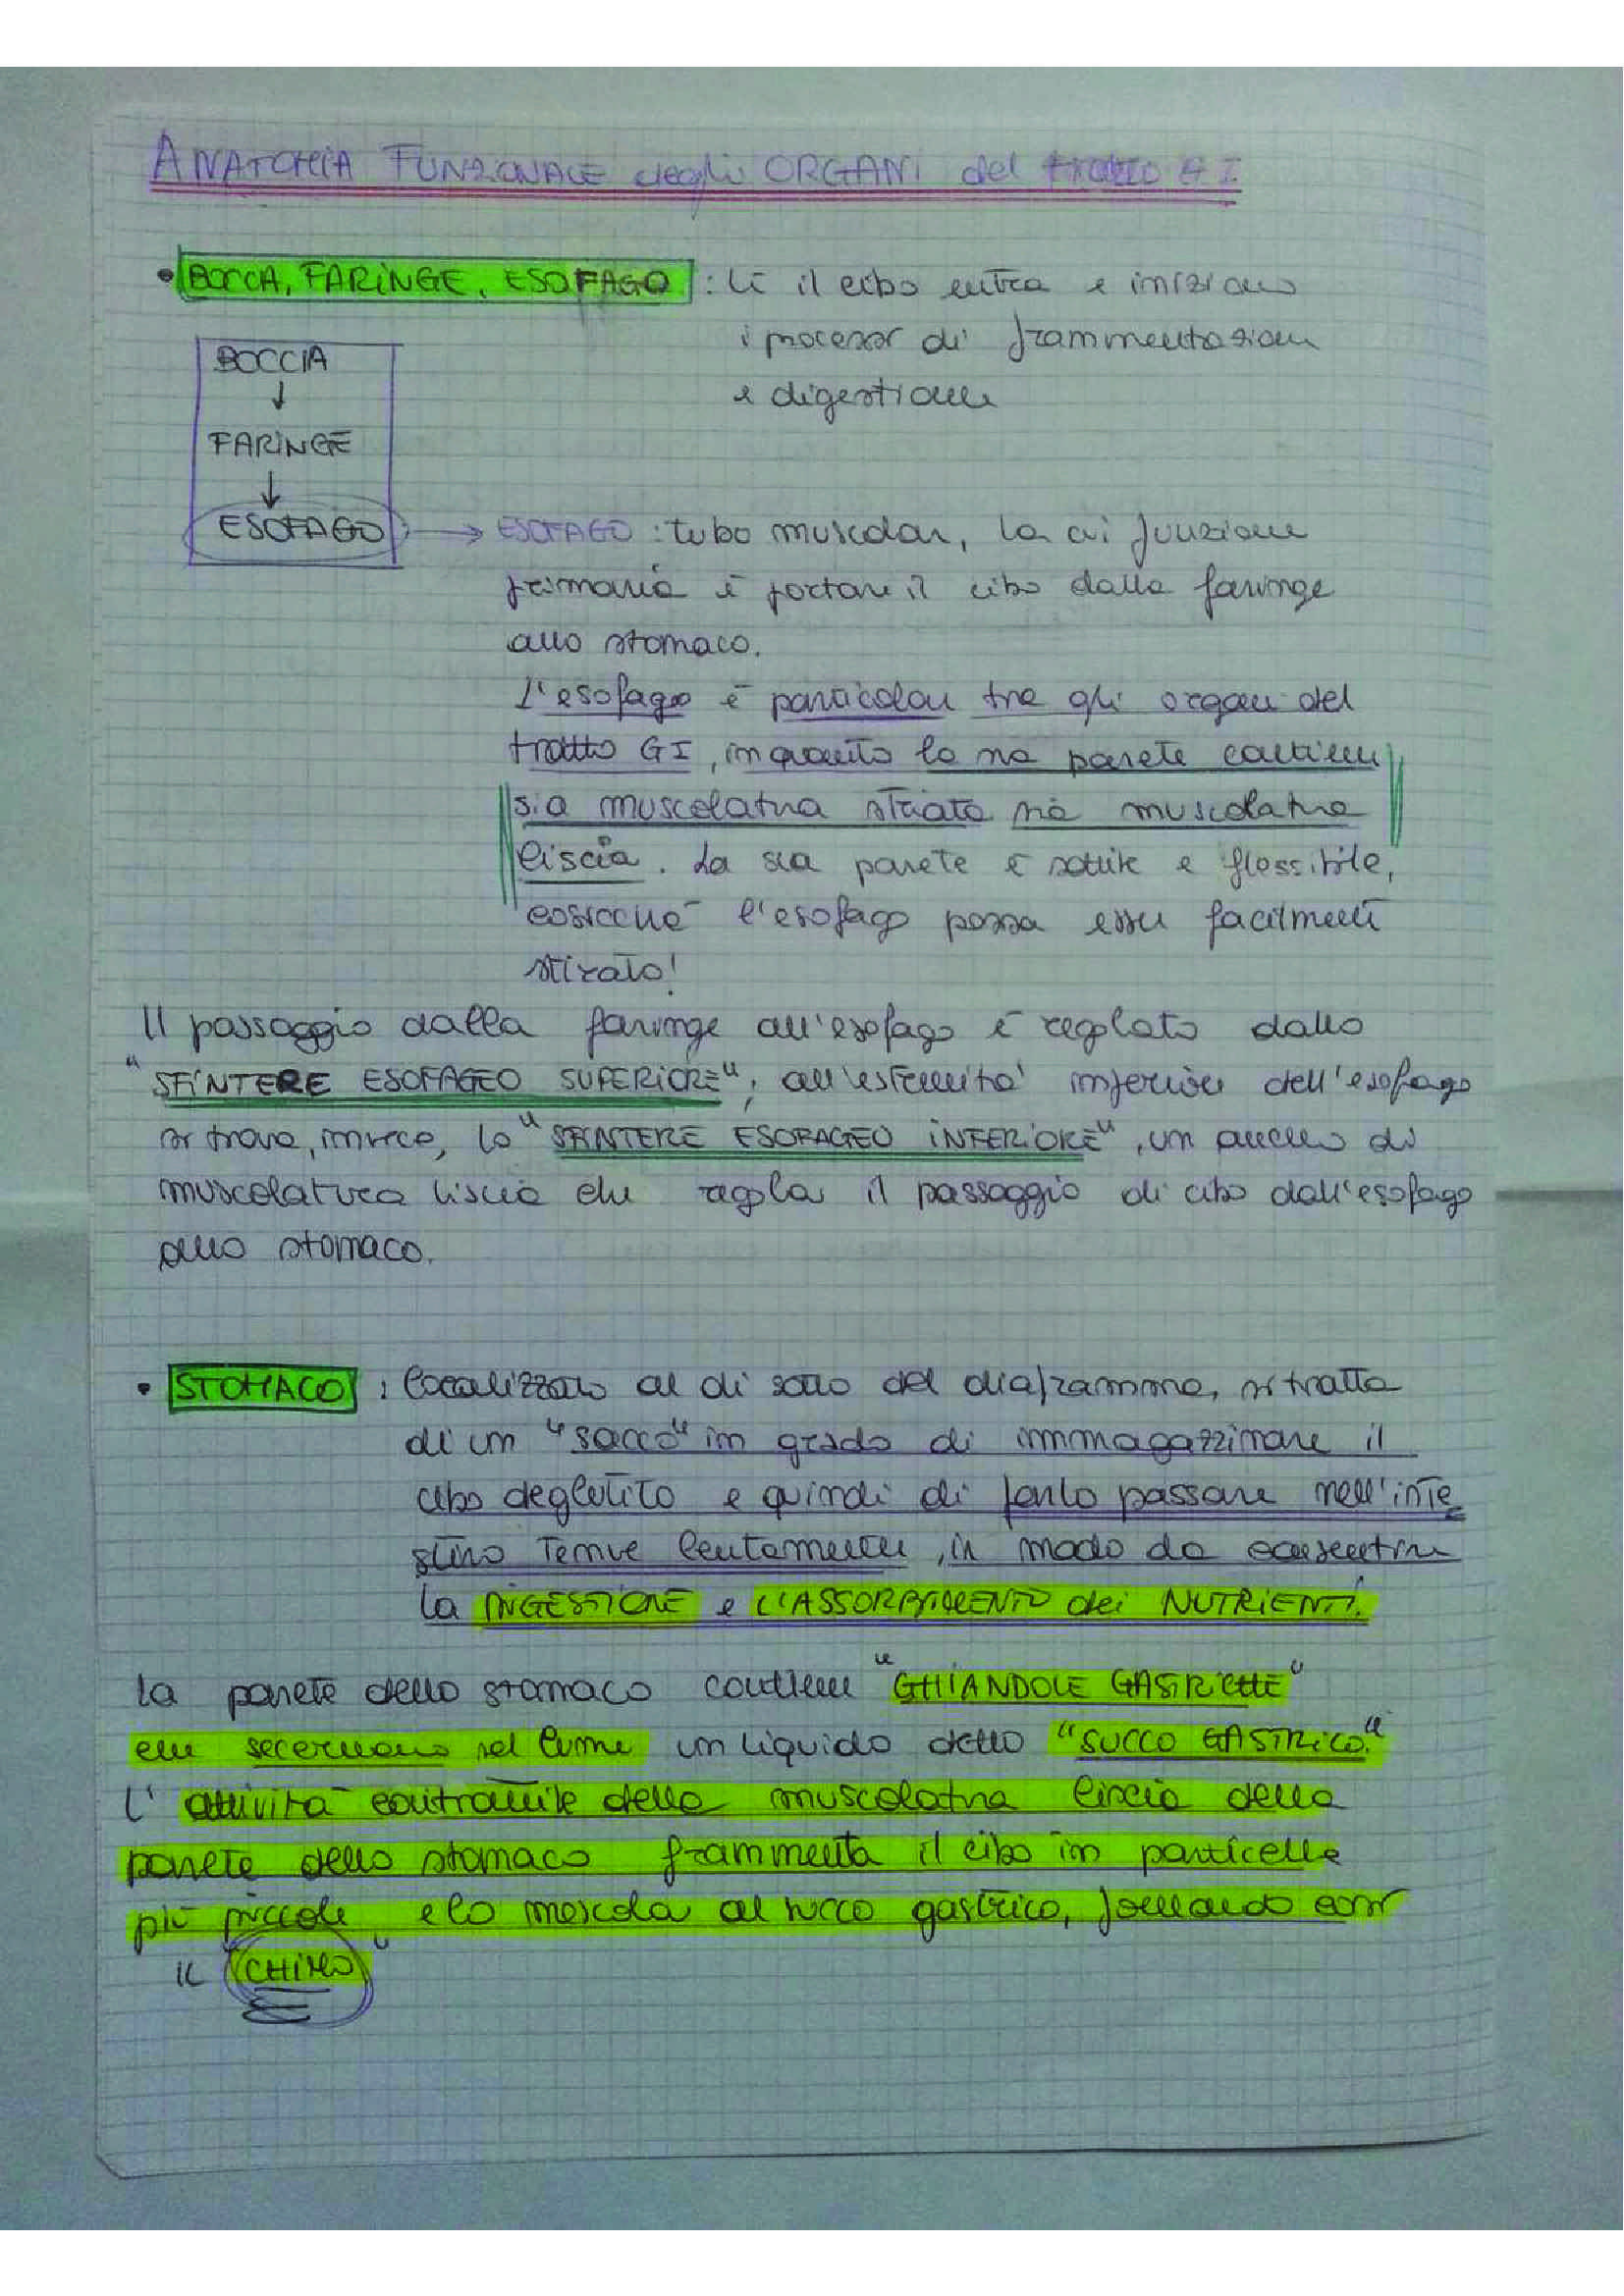 ANATOMIA FUNZIONALE degli ORGANI del tratto GI
• BOCCA, FARINGE, ESOFAGO : lì il cibo entra e iniziano
i processi di frammentazione
e digestione
BOCCIA
↓
FARINGE
↓
ESOFAGO → ESOFAGO : tubo muscolare, la cui funzione
primaria è portare il cibo dalla faringe
allo stomaco.
L'esofago è particolare tra gli organi del
tratto GI, in quanto la sua parete contiene
sia muscolatura striata sia muscolatura
liscia. La sua parete è sottile e flessibile,
cosicché l'esofago possa essere facilmente
stirato!
Il passaggio dalla faringe all'esofago è regolato dallo
"SFINTERE ESOFAGEO SUPERIORE", all'estremità inferiore dell'esofago
si trova, invece, lo "SFINTERE ESOFAGEO INFERIORE", un anello di
muscolatura liscia che regola il passaggio di cibo dall'esofago
allo stomaco.
• STOMACO : localizzato al di sotto del diaframma, si tratta
di un "sacco" in grado di immagazzinare il
cibo deglutito e quindi di farlo passare nell'inte
stino tenue lentamente, in modo da consentire
la DIGESTIONE e L'ASSORBIMENTO dei NUTRIENTI.
La parete dello stomaco contiene "GHIANDOLE GASTRICHE"
che secernono nel lume un liquido detto "SUCCO GASTRICO."
L'attività contrattile della muscolatura liscia della
parete dello stomaco frammenta il cibo in particelle
più piccole e lo mescola al succo gastrico, formando così
il "CHIMO"